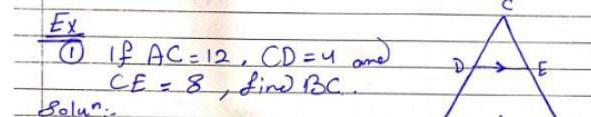 C
Ex
① If AC = 12, CD = 4 and
D E
CE = 8, find BC.
Solun:-